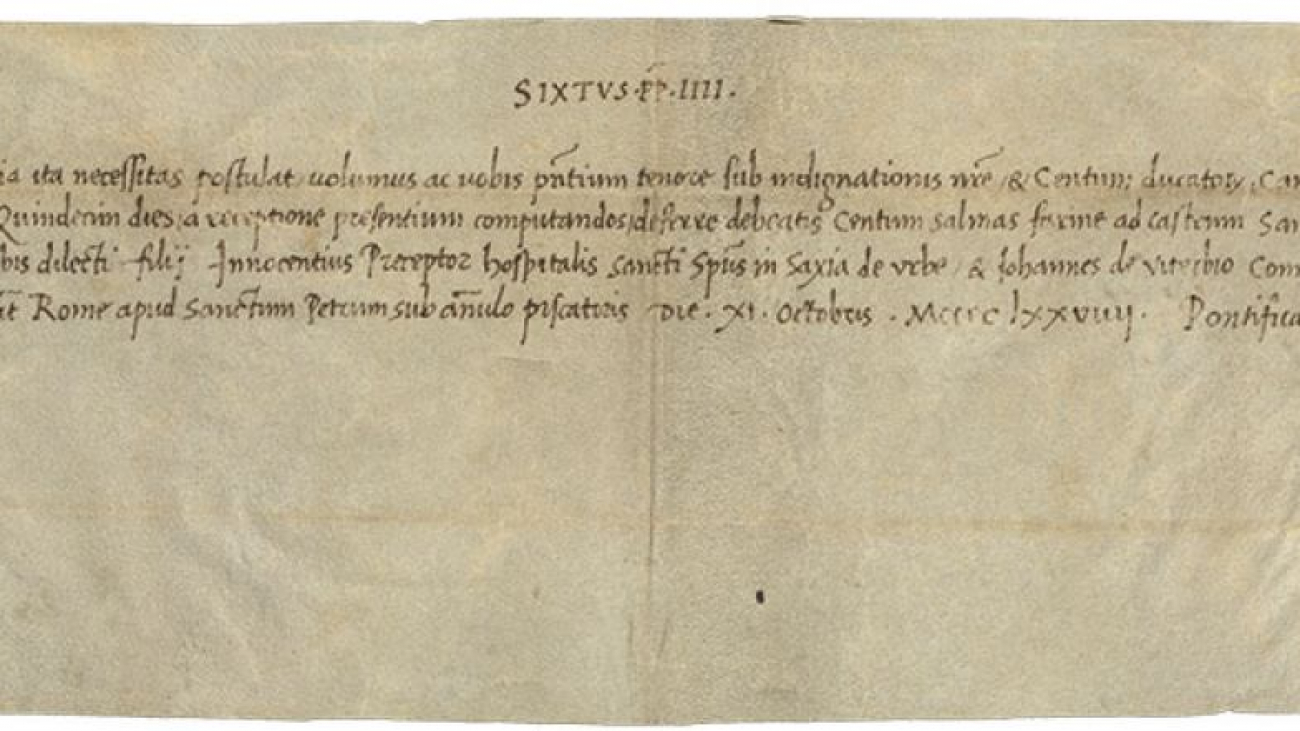 SIXTVS·PP·IIII·
ita necessitas postulat uolumus ac uobis pñtium tenore sub indignationis nrẽ & Centum ducatorꝝ Cam
Quindecim dies a receptione presentium computandos deferre debeatis Centum salmas farine ad castrum San
bis dilecti filij Innocentius Preceptor hospitalis sancti Spũs in Saxia de vrbe & Iohannes de viterbio Com
Rome apud Sanctum Petrum sub añulo piscatoris Die · XI · Octobris · Mcccc lxxviiij · Pontifica